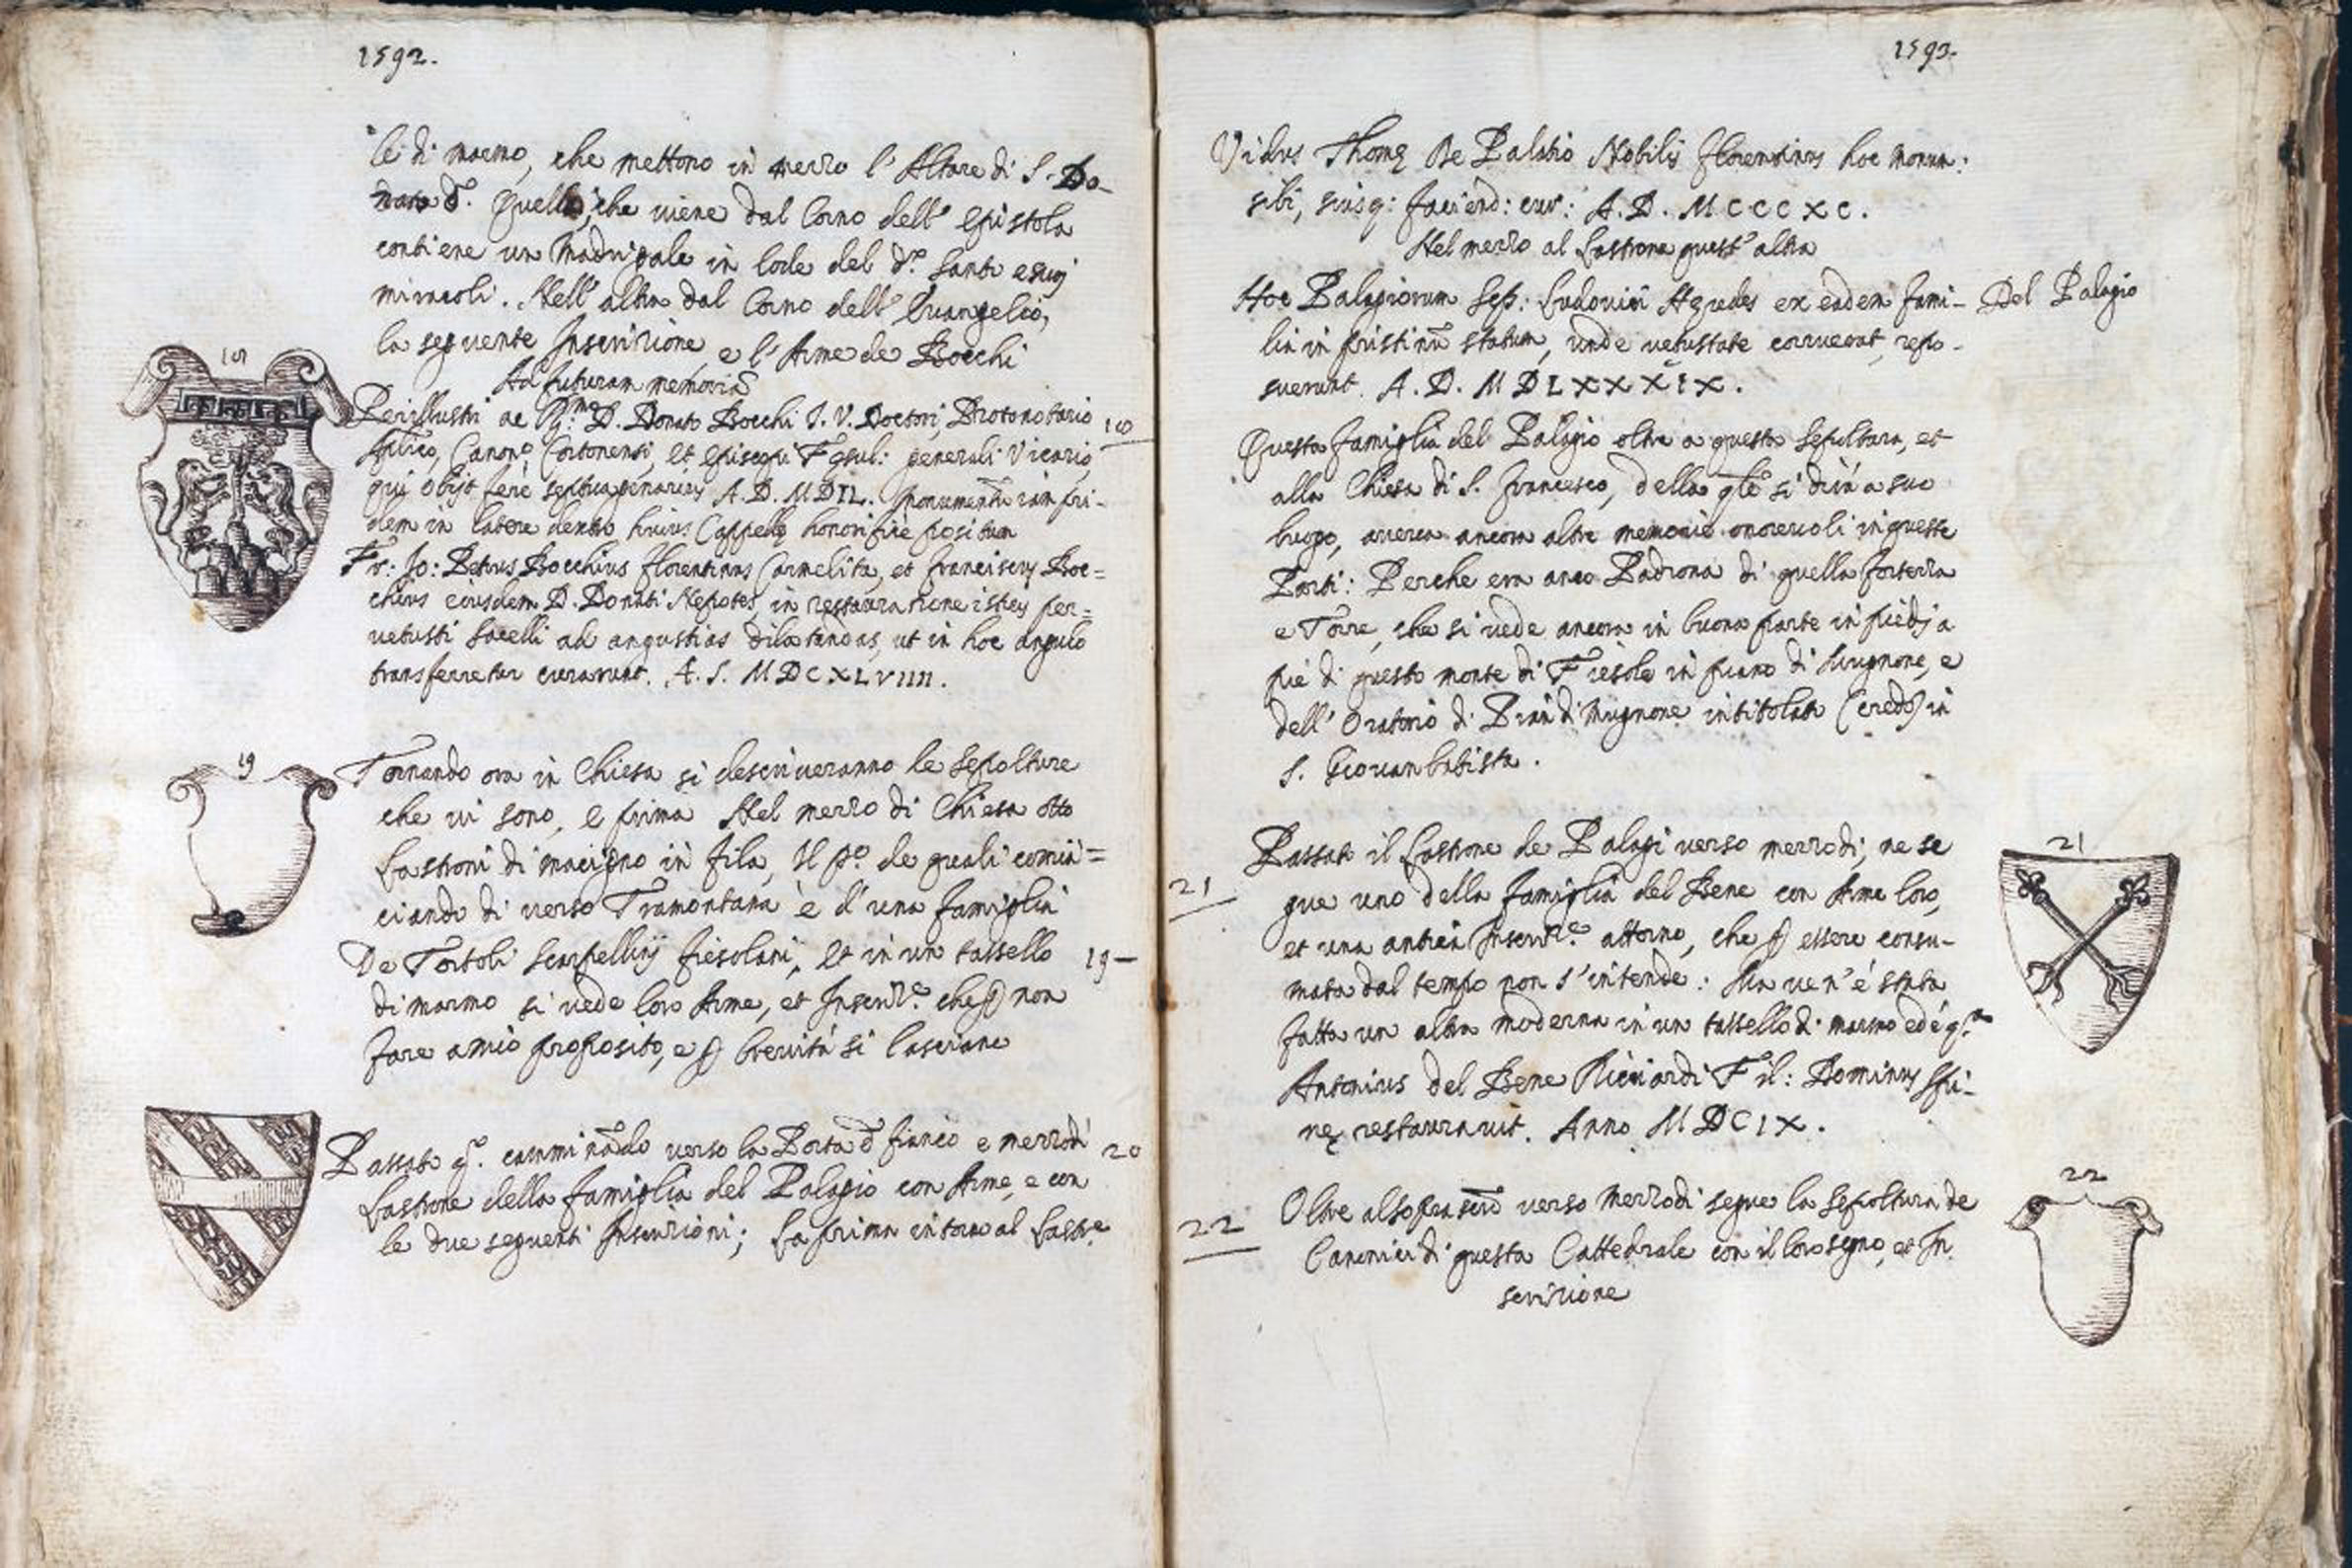 1592.
le di marmo, che mettono in mezzo l'Altare di S. Do-
nato d.º Quella, che viene dal Corno dell'Epistola
contiene un Madrigale in lode del d.º Santo e suoj
miracoli. Nell'altra dal Corno dell'Evangelio,
la seguente Inscrizione, e l'Arme de Bocchi
Ad futuram memoriã
18
Perillustri ac D. Donato Bocchi J. V. Doctori, Protonotario 18
Canonº Cortonensi, et Episcopi Fęsul: generali Vicario,
qui obijt ferè septuagenarius A. D. MDIL. monumentũ iam pri-
dem in latere dextro huius Cappellę honorificè positum
Fr: Jo: Petrus Bocchius Florentinus Carmelita, et Franciscus Boc=
chius eiusdem D. Donati Nepotes, in restauratione istius per=
vetusti Sacelli ad angustias dilatandas, ut in hoc angulo
transferretur curarunt. A. S. MDCXLVIIII.
19
Tornando ora in Chiesa si descriveranno le Sepolture
che vi sono, e prima Nel mezzo di Chiesa otto
Lastroni di macigno in fila, Il pº de quali comin=
ciando di verso Tramontana è d'una famiglia
De Tortoli Scarpellinj fiesolani, et in un tassello 19—
di marmo si vede loro Arme, et Inscrize che non
fare a mio proposito, e brevità si lasciano
Passato qº. camminãdo verso la Porta d fianco e mezzodì 20
Lastrone della famiglia del Palagio con Arme, e con
le due seguenti Inscrizioni; La prima intorno al Lastre
1593.
Vidus Thomę De Palatio Nobilis Florentinus hoc monum:
sibi, suisq: faciend: cur: A. D. MCCCXC.
Nel mezzo al Lastrone quest'altra
Hoc Palagiorum Sep: Ludovici Hęredes ex eadem fami- Del Palagio
lia in pristinũ statum, unde vetustate corruerat, repo-
suerunt. A. D. MDLXXXIX.
Questa famiglia del Palagio oltre a questa Sepoltura, et
alla Chiesa di S. Francesco, della qle si dirà a suo
luogo, aveva ancora altre memorie onorevoli in queste
Parti: Perche era anco Padrona di quella fortezza
e Torre, che si vede ancora in buona parte in piedj a
piè di questo monte di Fiesole in piano di Mugnone, e
dell'Oratorio di Pian di Mugnone intitolato (credo) in
S. Giovanbatista.
21
Passato il Lastrone de Palagi verso mezzodì, ne se
21
gue uno della famiglia del Bene con Arme loro,
et una antica Inscrize attorno, che essere consu-
mata dal tempo non s'intende: Ma ve n'è stata
fatta un altra moderna in un tassello di marmo ed è q.ta
Antonius del Bene Ricciardi Fil: Dominus Spi-
nę restauravit. Anno MDCIX.
22
Oltre al sopradº verso Mezzodi segue la Sepoltura de
22
Canonici di questa Cattedrale con il loro segno, et In
scrizione